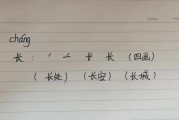 cháng
长：㇒ 𠂉 卡 长（四画）
（长处）（长安）（长城）